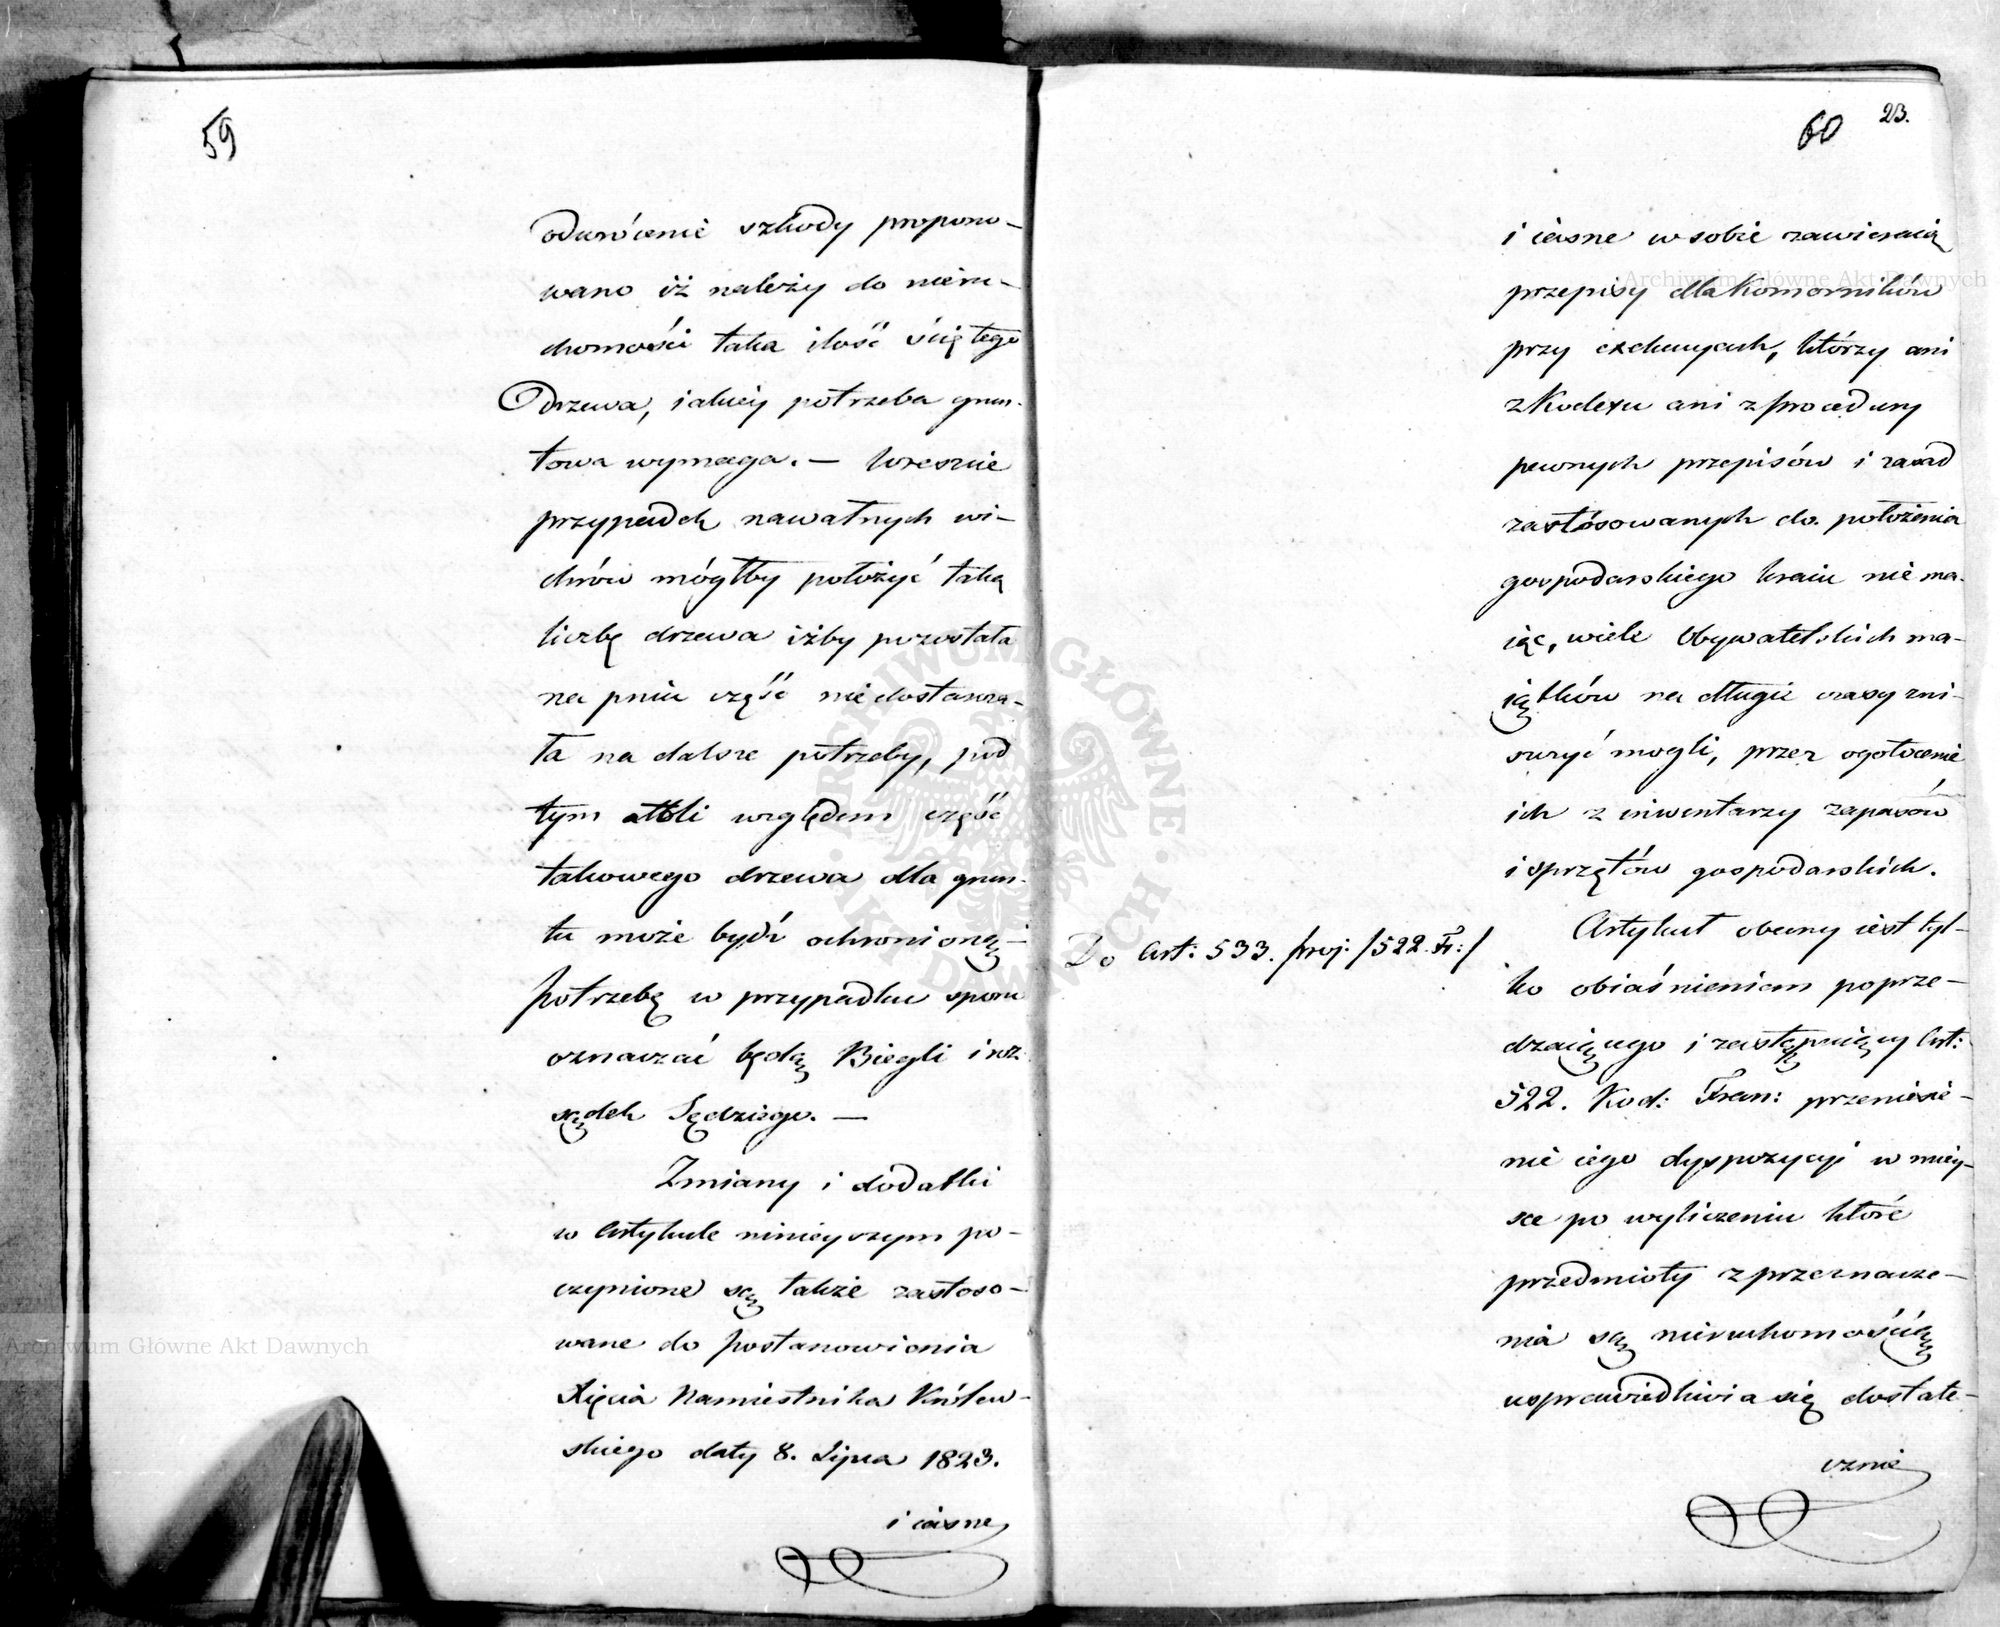 59
odwrócenie szkody propono-
wano iż należy do nieru-
chomości taka ilość ściętego
Drzewa, iakiey potrzeba grun-
towa wymaga. — Wreszcie
przypadek nawałnych wi-
chrów mógłby położyć taką
liczbę drzewa iżby pozostała
na pniu część nie dostarcza-
ła na dalsze potrzeby, pod
tym względem część
takowego drzewa dla grun-
tu może bydź ochronioną;
potrzebę w przypadku sporu
oznaczać będą Biegli i roz-
sądek Sędziego. —
Zmiany i dodatki
w Artykule ninieyszym po-
czynione są także zastoso-
wane do postanowienia
Xięcia Namiestnika Królew-
skiego daty 8. Lipca 1823.
i iasne
60 23.
i iasne w sobie zawieraią
przepisy dla Komorników
przy exekucyach, którzy ani
z Kodexu ani z procedury
pewnych przepisów i zasad
zastósowanych do położenia
gospodarskiego kraiu nie ma-
iąc, wiele Obywatelskich ma-
iątków na długie czasy zni-
szczyć mogli, przez ogołocenie
ich z inwentarzy zapasów
i sprzętów gospodarskich.
Do Art: 533. proj. /522. Fr:/
Artykuł obecny iest tyl-
ko obiaśnieniem poprze-
dzaiącego i zastępuiący Art:
522. Kod: Fran: przeniesie-
nie iego dyspozycyi w miey-
sce po wyliczeniu które
przedmioty z przeznacze-
nia są nieruchomością
usprawiedliwia się dostate-
cznie
Archiwum Główne Akt Dawnych
Archiwum Główne Akt Dawnych
ARCHIWUM GŁÓWNE · AKT DAWNYCH ·